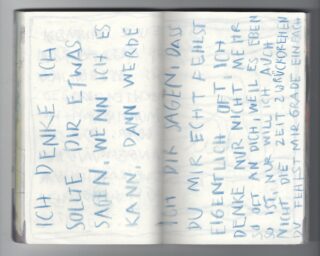 ICH DENKE, ICH
SOLLTE DIR ETWAS
SAGEN, WENN ICH ES
KANN, DANN WERDE
ICH DIR SAGEN, DASS
DU MIR ECHT FEHLST
EIGENTLICH OFT. ICH
DENKE NUR NICHT MEHR
SO OFT AN DICH, WEIL ES EBEN
SO IST. NUR WILL ICH AUCH
NICHT DIE ZEIT ZURÜCKDREHEN
DU FEHLST MIR GRADE EINFACH